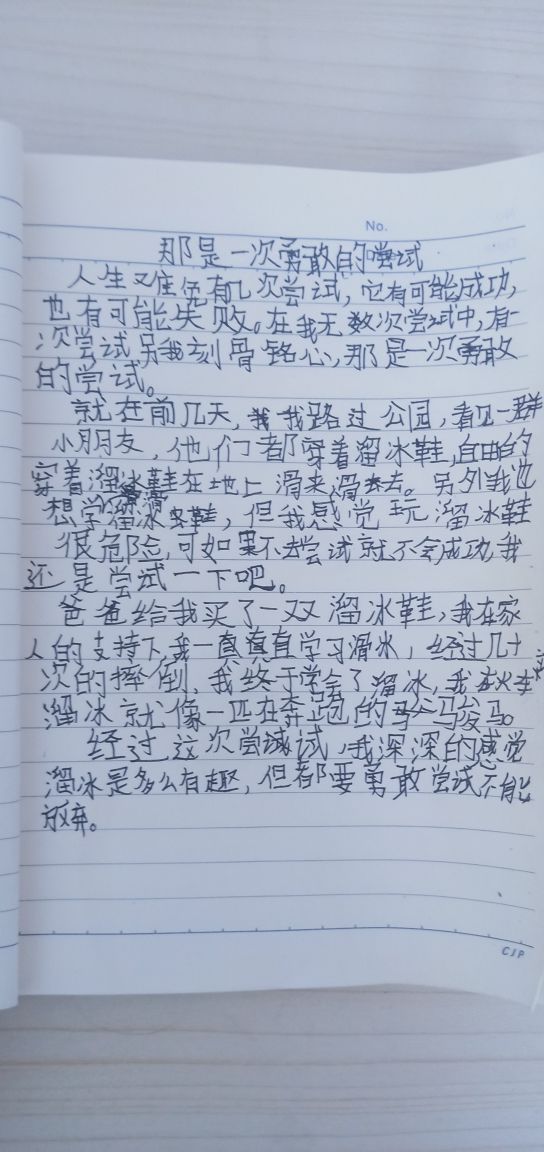 No.
那是一次勇敢的尝试
人生又住凭有几次尝试,它有可能成功,
也有可能失败。在我无数次尝试中,有一
次尝试另我刻骨铭心,那是一次勇敢
的尝试。
就在前几天,我路过公园,看见一群
小朋友,他们都穿着溜冰鞋,自由的
穿着溜冰鞋在地上滑来滑去。另外我也
想学溜冰鞋,但我感觉玩溜冰鞋
很危险,可如果不去尝试就不会成功,我
还是尝试一下吧。
爸爸给我买了一双溜冰鞋,我在家
人的支持下,我一直学习滑冰,经过几十
次的摔倒,我终于学会了溜冰,我
溜冰就像一匹在奔跑的骏马。
经过这次尝试,我深深的感觉
溜冰是多么有趣,但都要勇敢尝试不能
放弃。
CJP